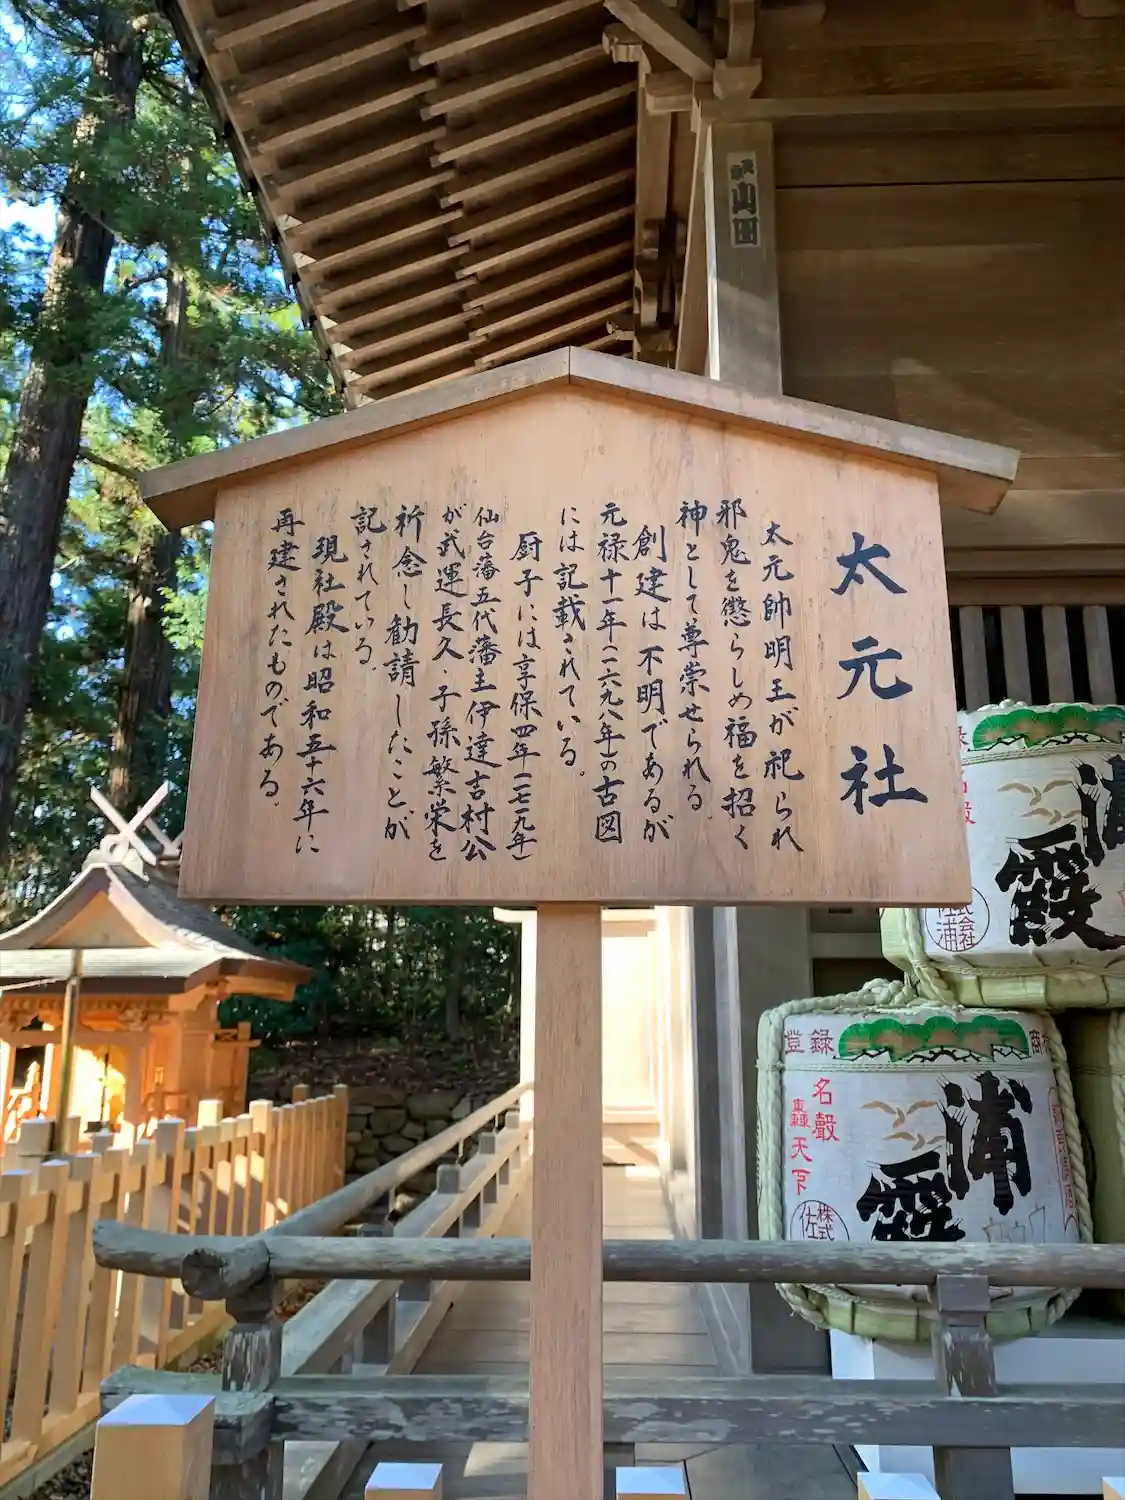 太元社
太元帥明王が祀られ
邪鬼を懲らしめ福を招く
神として尊崇せられる。
創建は不明であるが
元禄十一年(一六九八年)の古図
には記載されている。
厨子には享保四年(一七一九年)
仙台藩五代藩主伊達吉村公
が武運長久・子孫繁栄を
祈念し勧請したことが
記されている。
現社殿は昭和五十六年に
再建されたものである。
山田
浦
霞
株式会社
佐浦
登録
商標
名声
轟天下
浦
霞
株式
佐